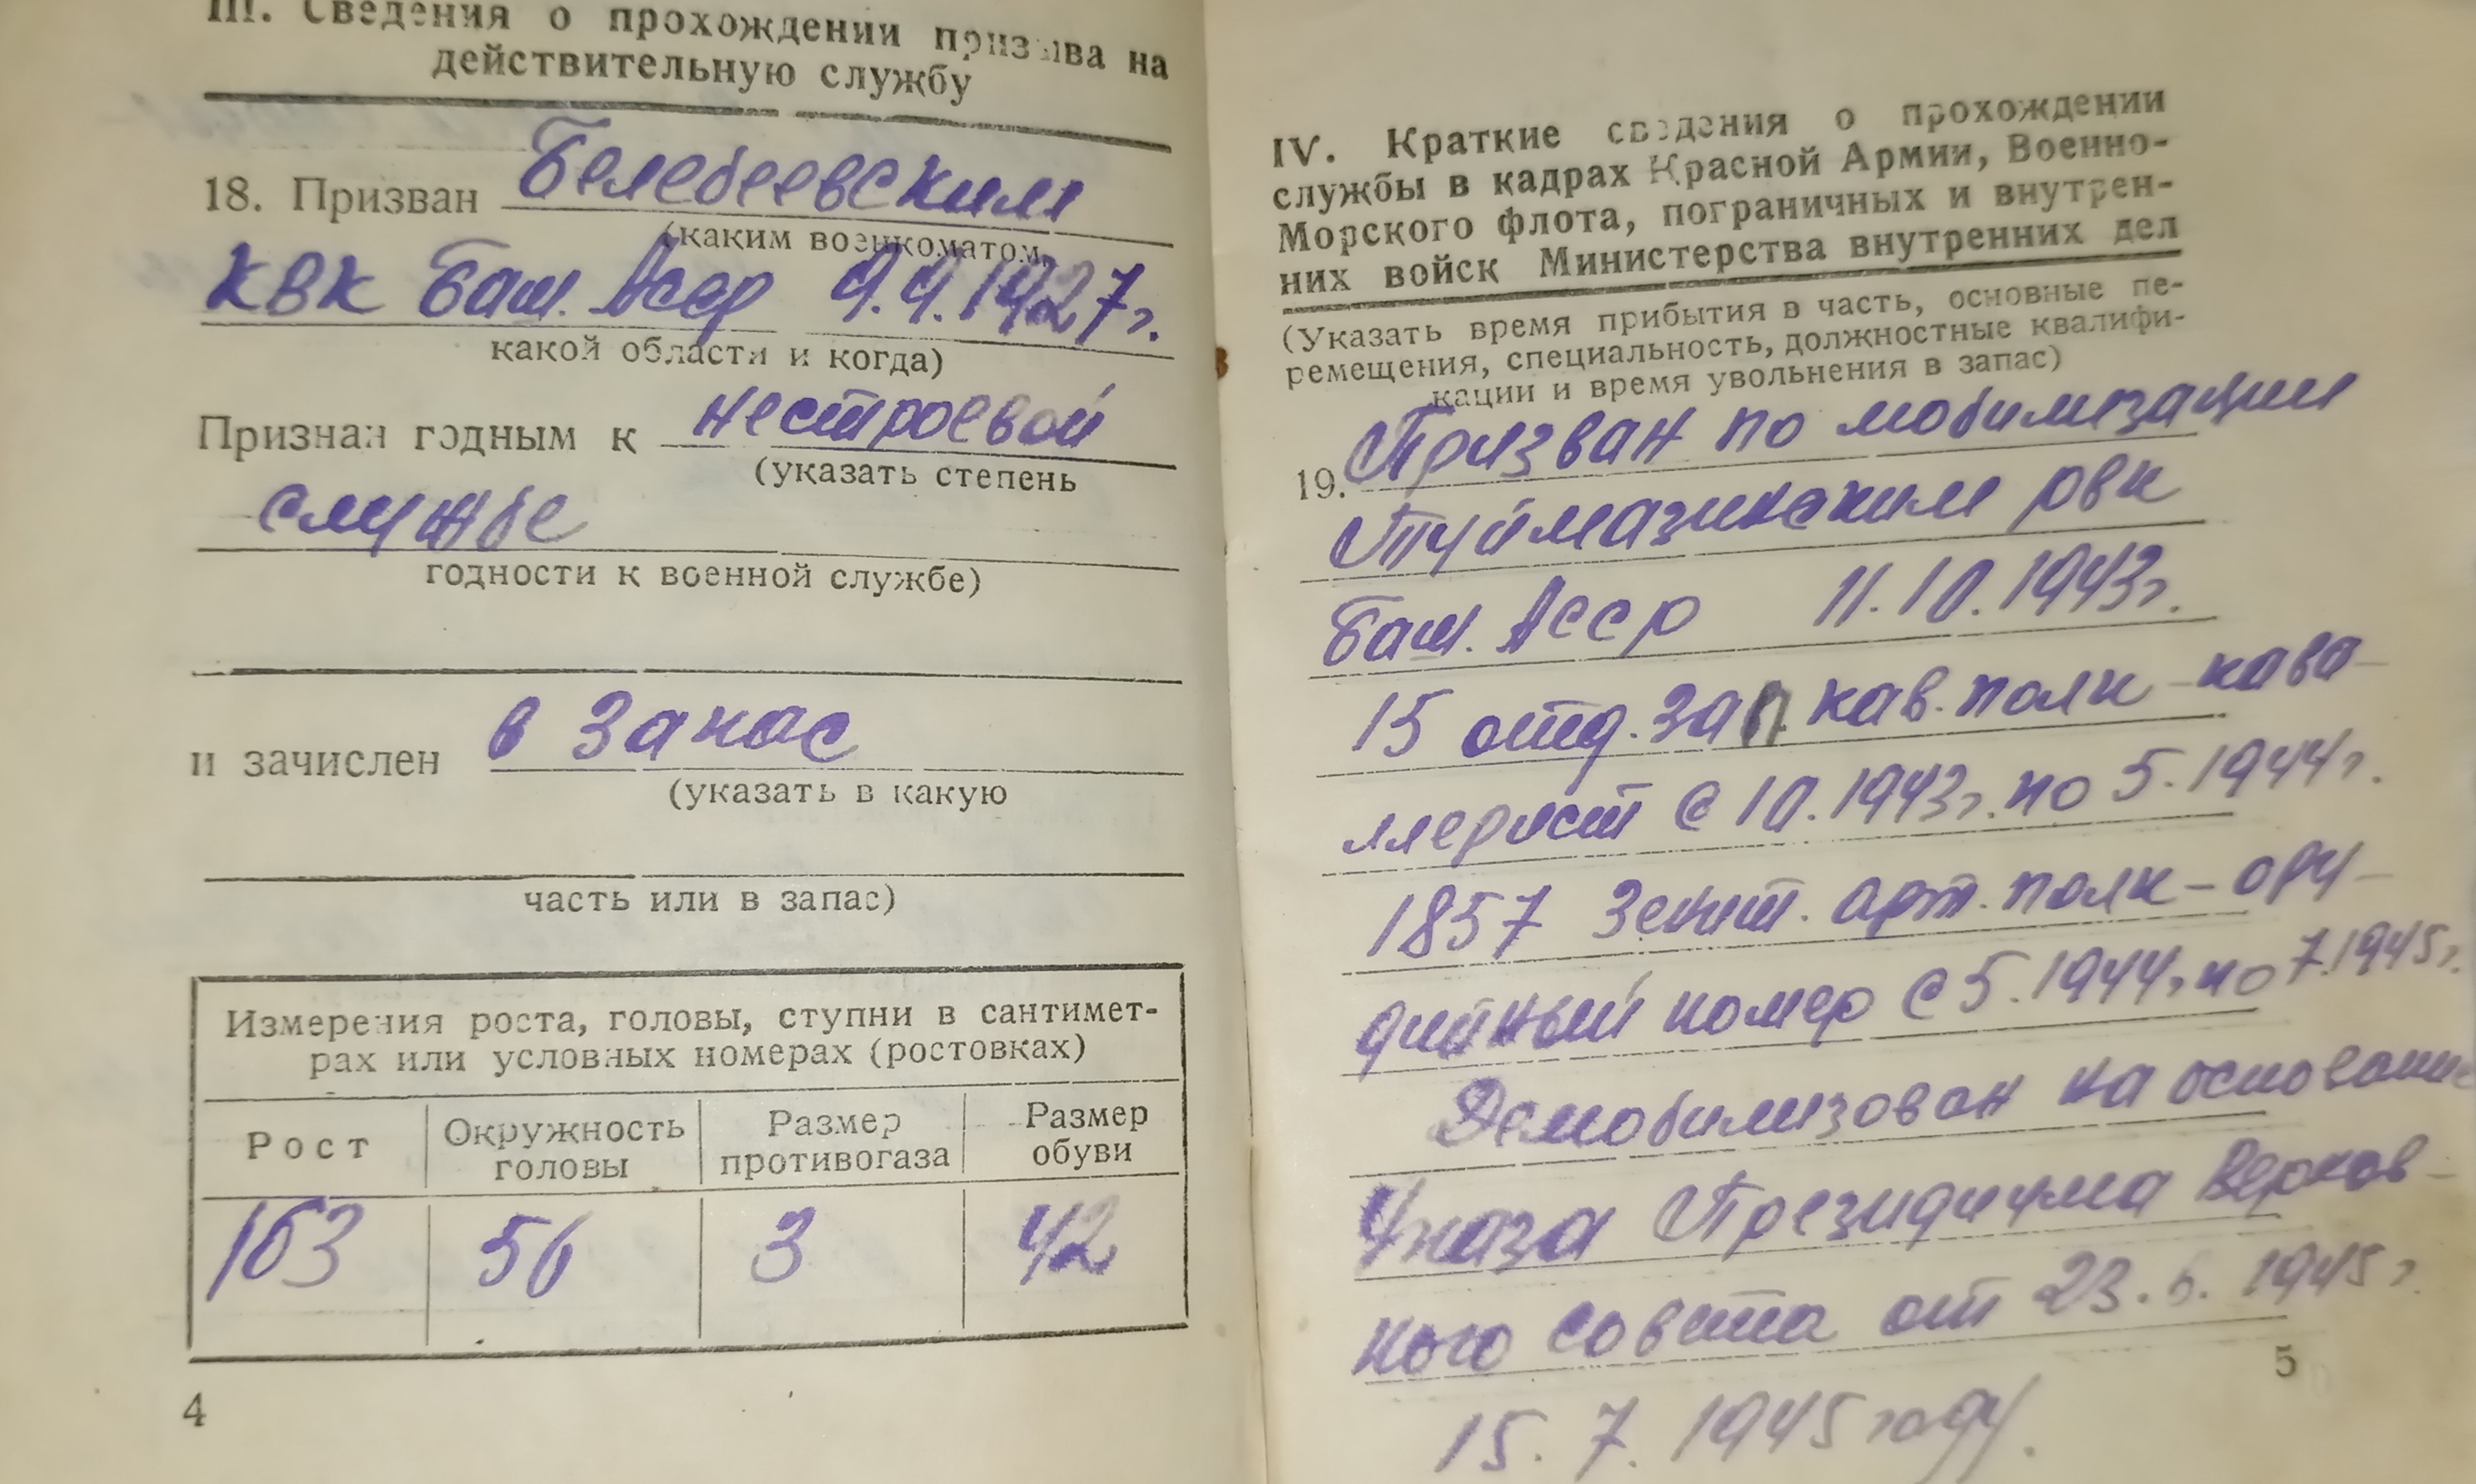 III. Сведения о прохождении призыва на
действительную службу
18. Призван Белебеевским
(каким военкоматом,
КВК Баш. Асср 9.9.1927г.
какой области и когда)
Признан годным к нестроевой
(указать степень
службе
годности к военной службе)
и зачислен в запас
(указать в какую
часть или в запас)
Измерения роста, головы, ступни в сантимет-
рах или условных номерах (ростовках)
Рост Окружность головы Размер противогаза Размер обуви
163 56 3 42
4
IV. Краткие сведения о прохождении
службы в кадрах Красной Армии, Военно-
Морского флота, пограничных и внутрен-
них войск Министерства внутренних дел
(Указать время прибытия в часть, основные пе-
ремещения, специальность, должностные квалифи-
кации и время увольнения в запас)
19. Призван по мобилизации
Туймазинским рвк
Баш. Асср 11.10.1943г.
15 отд. зап кав. полк - кава-
ллерист с 10.1943г. по 5.1944г.
1857 Зенит. арт. полк - ору-
дийный номер с 5.1944г. по 7.1945г.
Демобилизован на основании
Указа Президиума Верхов-
ного совета от 23.6.1945г
15.7.1945 году.
5